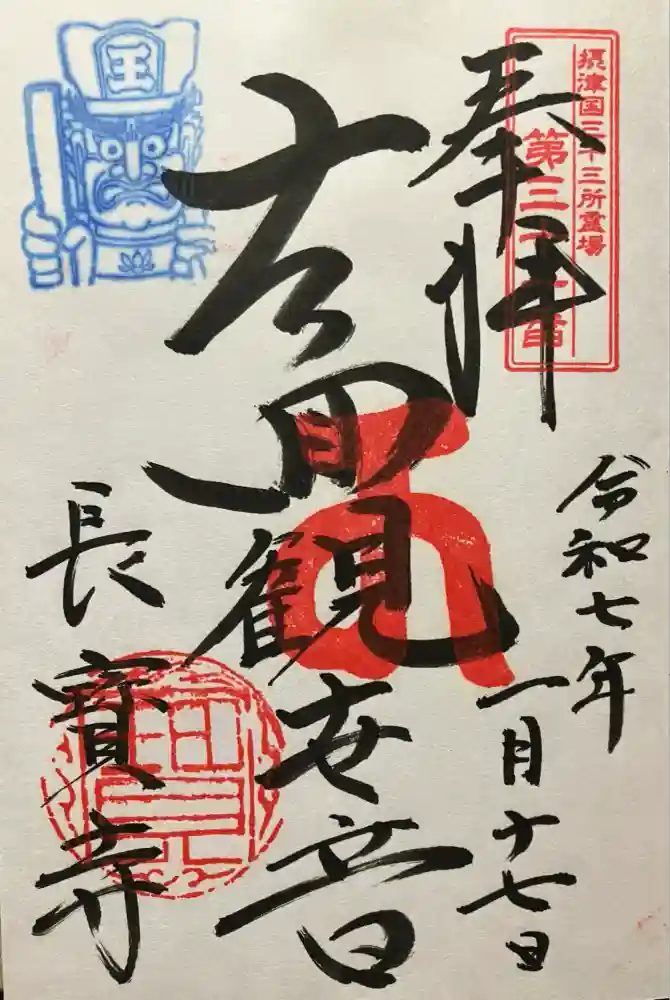 摂津国三十三所霊場
第三 番
奉拝
令和七年
一月十七日
十一面観世音
王
長寶寺